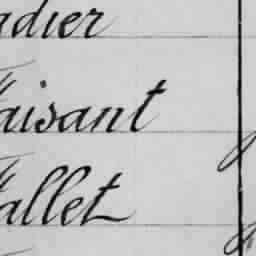 adier
aisant
allet